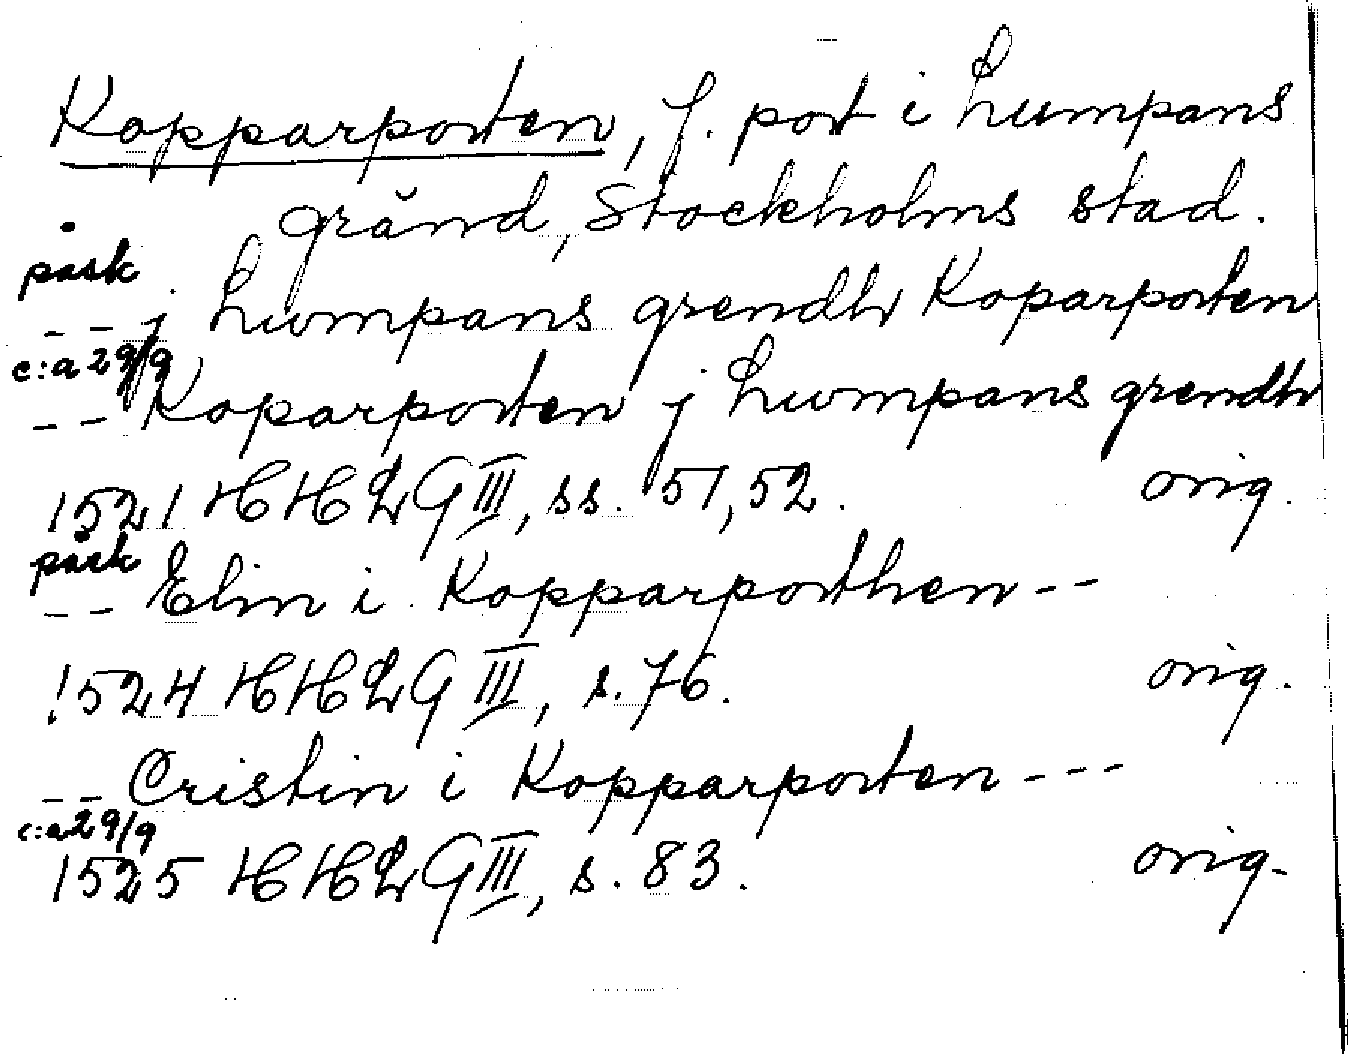 Kopparporten, f. port i Lumpans
gränd, Stockholms stad.
påsk
-- j Lwmpans grendh Koparporten
c:a 29/9
-- Koparporten j Lwmpans grendh
1521 HHLG III, ss. 51, 52. orig.
påsk
-- Elin i Kopparporthen --
1524 HHLG III, s. 76. orig.
-- Cristin i Kopparporten ---
c:a 29/9
1525 HHLG III, s. 83. orig.